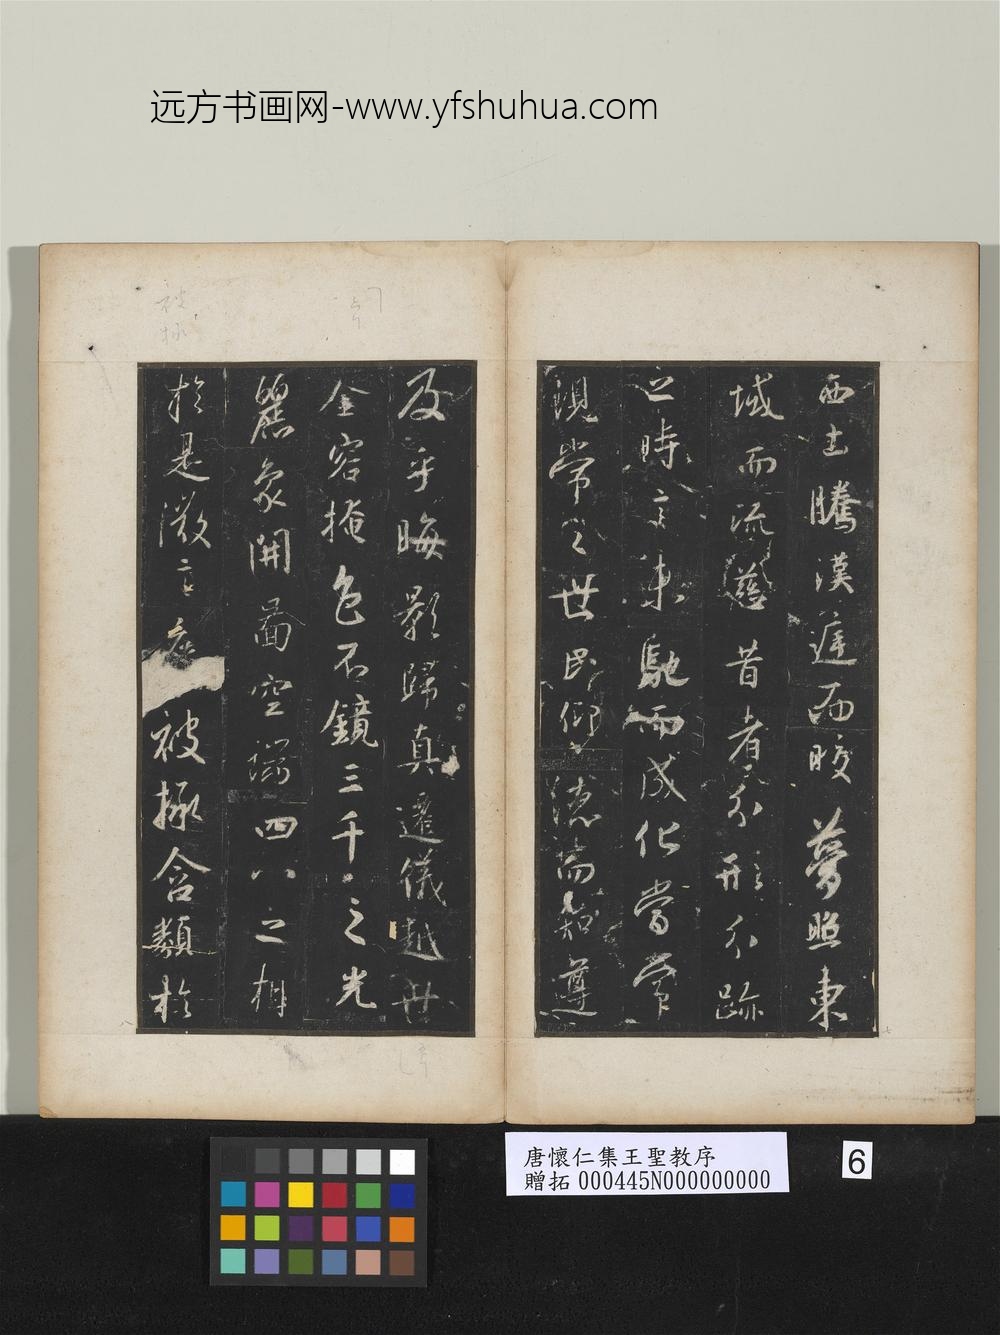 远方书画网-www.yfshuhua.com
西土騰漢庭而皎夢照東
域而流慈昔者分形分跡
之時言未馳而成化當常
現常之世民仰德而知遵
及乎晦影歸真遷儀越世
金容掩色不鏡三千之光
麗象開圖空端四八之相
於是微言廣被拯含類於
唐懷仁集王聖教序
贈拓 000445N000000000
6